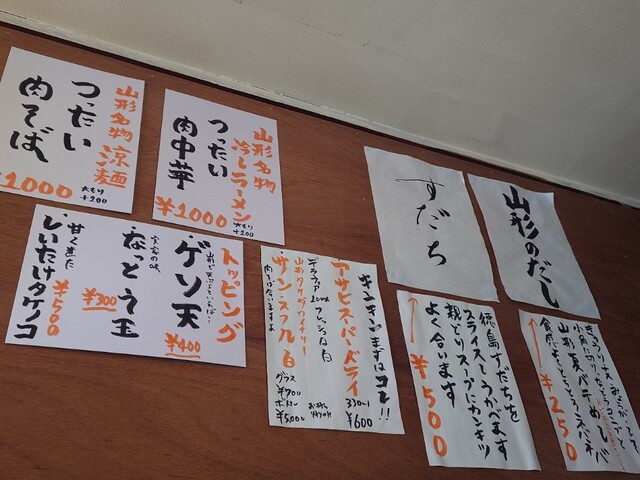 山形名物 涼麺
つったい
肉そば
¥1000
大もり
+200
山形名物
冷しラーメン
つったい
肉中華
¥1000
大もり
+200
すだち
山形のだし
トッピング
ゲソ天
¥400
なっとう玉
¥300
甘く煮た
しいたけタケノコ
¥500
キンキンまずはコレ!!
アサヒスーパードライ
¥600
デラウェア100%
サン・スフル白
グラス
¥900
ボトル
¥5,000
徳島すだちを
スライスしうかべます
親どりスープにカンキツ
よく合います
¥500
¥250